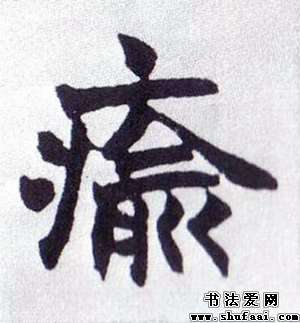 瘉
书法爱网
www.shufaai.com